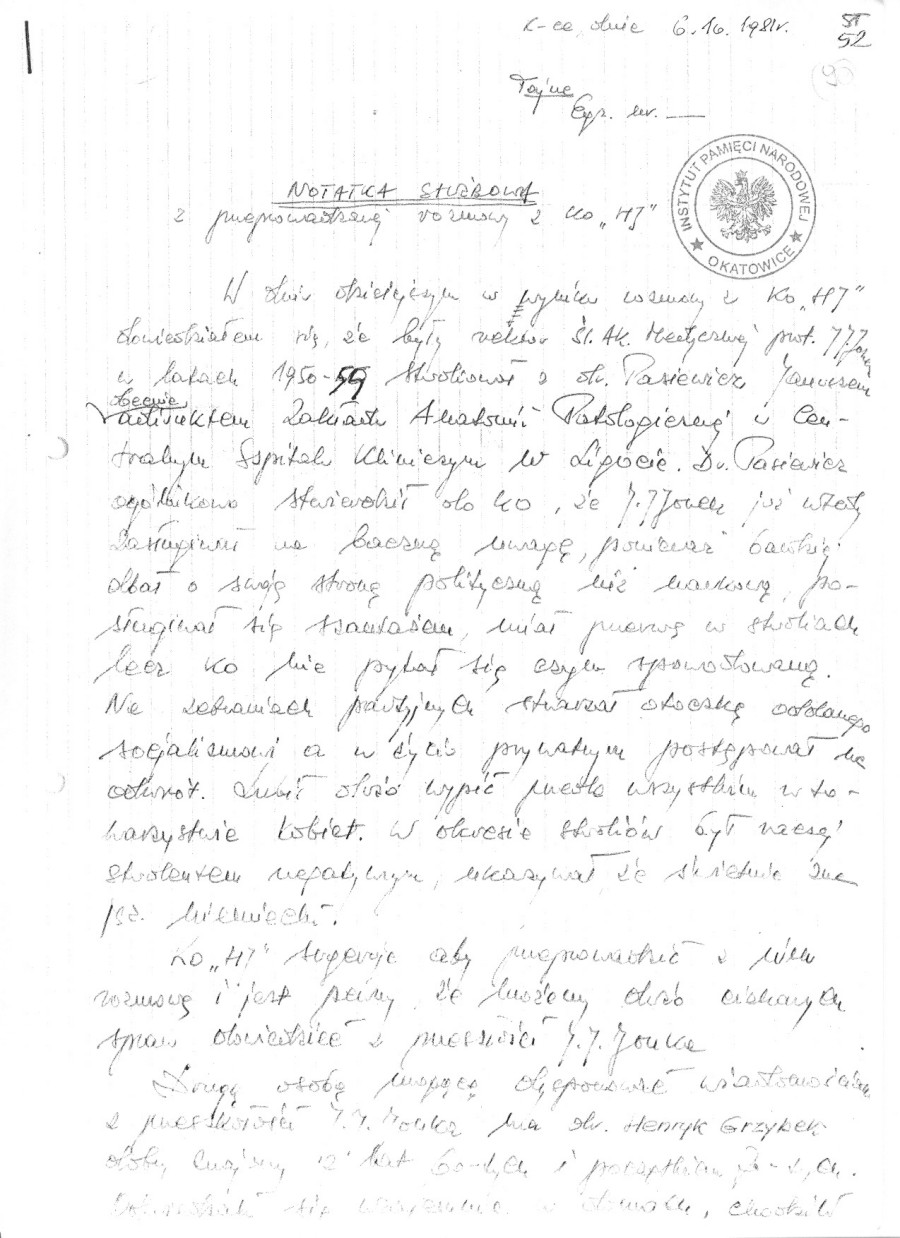 K-ce, dnia 6.10.1981r.
52
Tajne
Egz. nr. —
INSTYTUT PAMIĘCI NARODOWEJ
O KATOWICE
NOTATKA SŁUŻBOWA
z przeprowadzonej rozmowy z KO „HJ"
W dniu dzisiejszym w wyniku rozmowy z KO „HJ"
dowiedziałem się, że były rektor Śl. Ak. Medycznej prof. J.J. Jonek
w latach 1950-59 studiował z dr. Pasiewicz Januszem
obecnie
adiunktem Zakładu Anatomii Patologicznej w Cen-
tralnym Szpitalu Klinicznym w Ligocie. Dr. Pasiewicz
ogólnikowo stwierdził do KO, że J.J. Jonek już wtedy
zasługiwał na baczną uwagę, ponieważ bardziej
dbał o swoją stronę polityczną niż naukową, po-
sługiwał się szantażem, miał przerwę w studiach
lecz KO nie pytał się czym spowodowaną.
Na zebraniach partyjnych stwarzał otoczkę oddanego
socjalizmowi a w życiu prywatnym postępował na
odwrót. Lubił dużo wypić przede wszystkim w to-
warzystwie kobiet. W okresie studiów był raczej
studentem negatywnym, ukazywał, że świetnie zna
jęz. niemiecki.
KO „HJ" sugeruje aby przeprowadzić z nim
rozmowę i jest pewny, że możemy dużo ciekawych
spraw dowiedzieć z przeszłości J.J. Jonka
Drugą osobą mogącą dysponować wiadomościami
z przeszłości J.J. Jonka ma dr. Henryk Grzybek
dobry znajomy z lat 60-tych i początkiem 70-tych.
się wzajemnie w domach, chodzili